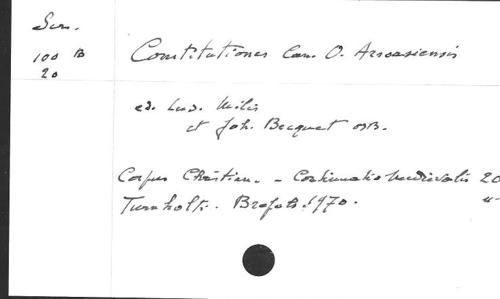 Ser.
100 B
20
Constitutiones Can. O. Arroasiensis
ed. Lud. Milis
et Joh. Becquet OSB.
Corpus Christian. - Continuatio Mediaevalis 20
Turnholti. Brepols. 1970.